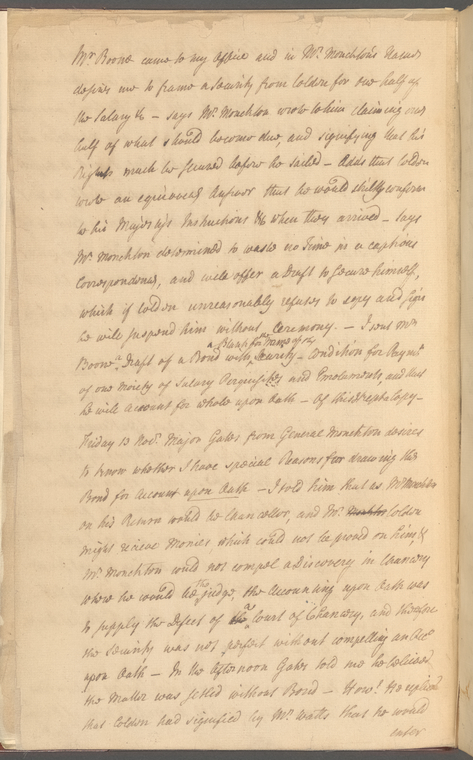 Mr Boone came to my Office and in Mr. Monckton's Name
desires me to frame a Security from Colden for one half of
the Salary &c - says Mr Monckton wrote to him claiming one
half of what should become due, and signifying that his
Rights must be secured before he sailed - Adds that Colden
wrote an equivocal Answer that he would strictly conform
to his Majestys Instructions &c when they arrived - says
Mr Monckton determined to waste no Time in a captious
Correspondence, and will offer a Draft to secure himself,
which if Colden unreasonably refuses to copy and sign
he will suspend him without Ceremony. - I sent Mr
Boone a Draft of a Bond with Blank for the Names of ye Security - Condition for Paymt
of one Moiety of Salary Perquisites and Emoluments, and that
he will Account for whole upon Oath -
Friday 13 Novr. Major Gates from General Monckton desires
to know whether I have special Reasons for drawing the
Bond for Account upon Oath - I told him that as Mr Monckton
on his Return would be Chancellor, and Mr. Colden
might recieve Monies which could not be proved on him, &
Mr. Monckton could not compel a Discovery in Chancery
where he would be the Judge, the Accounting upon Oath was
to supply the Defect of the Court of Chancery, and therefore
the Security was not perfect without compelling an Acct
upon Oath - In the Afternoon Gates told me he believed
the Matter was settled without Bond - How! He replied
that Colden had signified by Mr. Watts that he would
enter